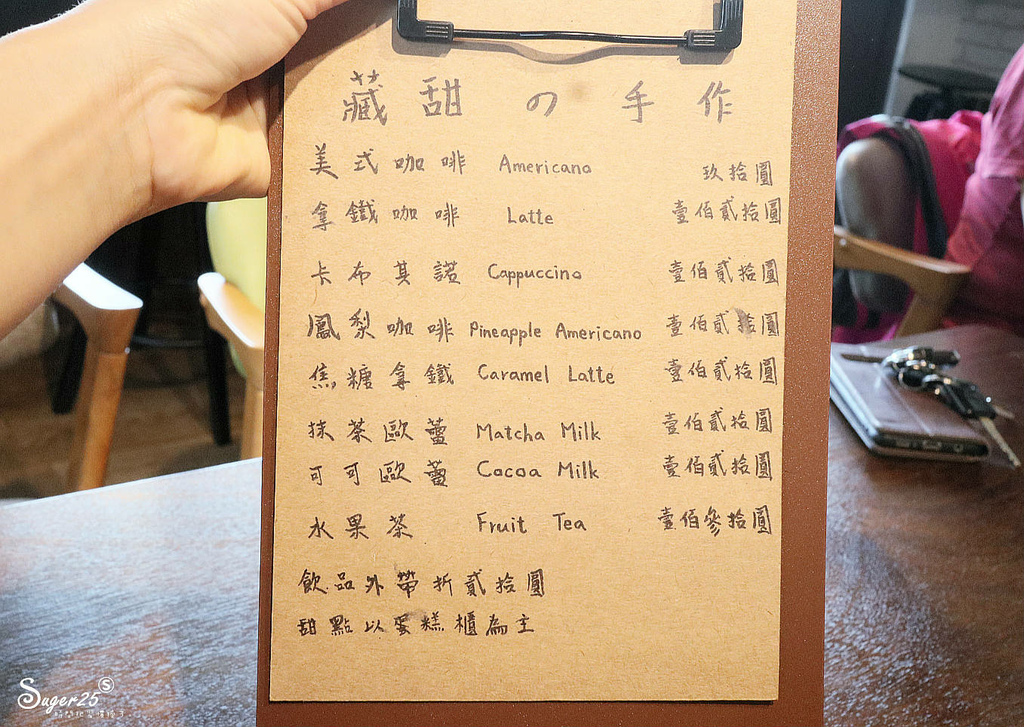 藏甜の手作
美式咖啡 Americano 玖拾圓
拿鐵咖啡 Latte 壹佰貳拾圓
卡布其諾 Cappuccino 壹佰貳拾圓
鳳梨咖啡 Pineapple Americano 壹佰貳拾圓
焦糖拿鐵 Caramel Latte 壹佰貳拾圓
抹茶歐蕾 Matcha Milk 壹佰貳拾圓
可可歐蕾 Cocoa Milk 壹佰貳拾圓
水果茶 Fruit Tea 壹佰參拾圓
飲品外帶折貳拾圓
甜點以蛋糕櫃為主
Suger25 S